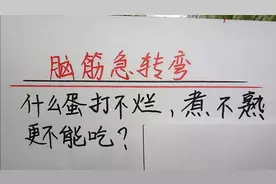 脑筋急转弯
什么蛋打不烂，煮不熟
更不能吃？